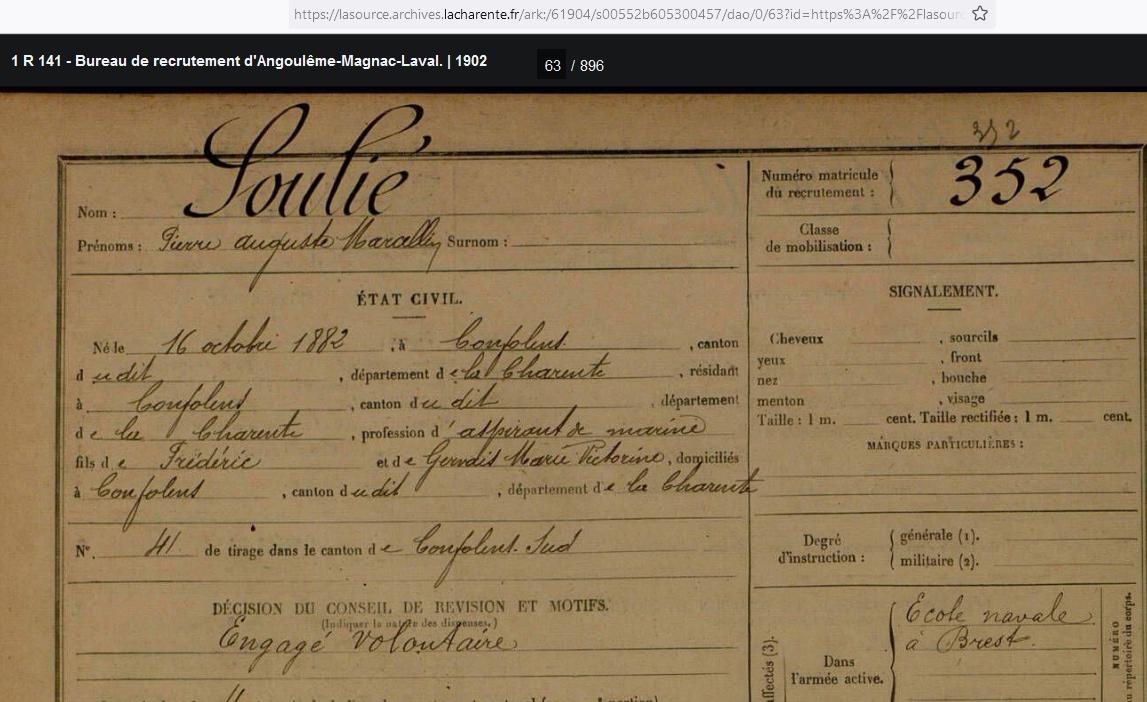 https://lasource.archives.lacharente.fr/ark:/61904/s00552b605300457/dao/0/63?id=https%3A%2F%2Flasourc
1 R 141 - Bureau de recrutement d'Angoulême-Magnac-Laval. | 1902 63 / 896
352
Soulié
Nom :
Prénoms : Pierre auguste Marcellin Surnom :
Numéro matricule du recrutement : 352
Classe de mobilisation :
ÉTAT CIVIL.
Né le 16 octobre 1882, à Confolens, canton
dudit, département de la Charente, résidant
à Confolens, canton dudit, département
de la Charente, profession d'aspirant de marine
fils de Frédéric et de Gervais Marie Victorine, domiciliés
à Confolens, canton dudit, département de la Charente
N°. 41 de tirage dans le canton de Confolens. Sud
DÉCISION DU CONSEIL DE REVISION ET MOTIFS.
(Indiquer la nature des dispenses.)
Engagé volontaire
SIGNALEMENT.
Cheveux, sourcils
yeux, front
nez, bouche
menton, visage
Taille : 1 m. cent. Taille rectifiée : 1 m. cent.
MARQUES PARTICULIÈRES :
Degré d'instruction : générale (1).
militaire (2).
Dans l'armée active. Ecole navale
à Brest.
NUMÉRO
répertoire du corps.